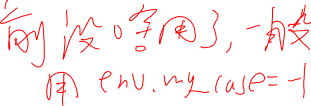 前没啥用了,一般
用 env.my_case=-1